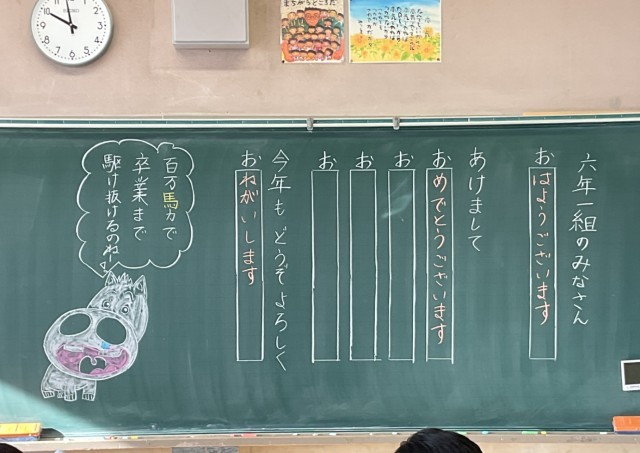 六年一組のみなさん
おはようございます
あけまして
おめでとうございます
お
お
お
今年もどうぞよろしく
おねがいします
百万馬力で
卒業まで
駆け抜けるのね
まちがうところだ